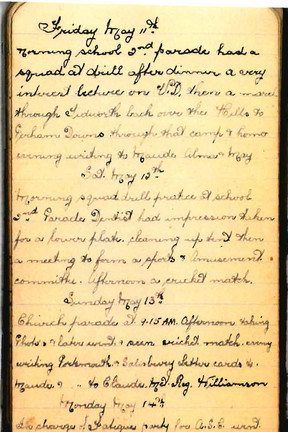 Friday May 11th
Morning school 2nd parade had a
squad at drill after dinner a very
interest lecture on V.D. then a march
through Tidworth back over the Hills to
Perham Downs through that camp & home
evening writing to Maude Alma & May
Sat. May 12th
Morning squad drill pratice at school
2nd Parade Dentist had impression taken
for a lower plate. cleaning up tent then
a meeting to form a sports & amusement
committe. Afternoon a cricket match.
Sunday May 13th
Church parade at 9.15 AM. Afternoon taking
Photo's & later went & seen cricket match. evening
writing Portsmouth & Salisbury Letter cards to
Maude & " " to Claude. Md. Reg. Williamson
Monday May 14th
In charge of Fatigue party for A.S.C. went